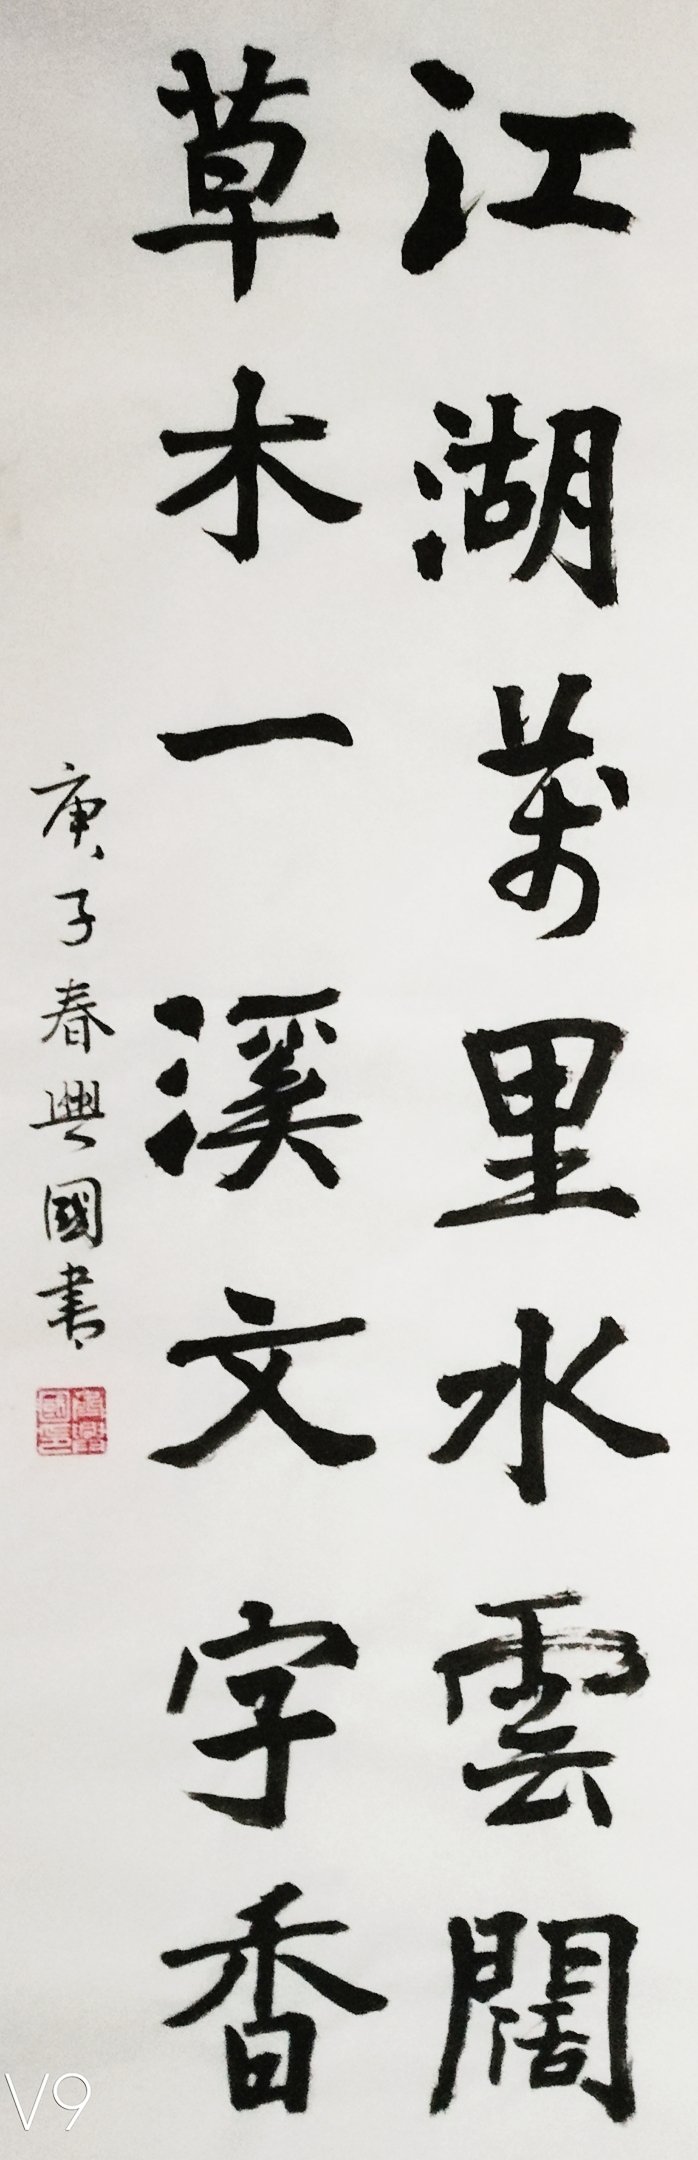 江湖萬里水雲闊
草木一溪文字香
庚子春興國書
V9